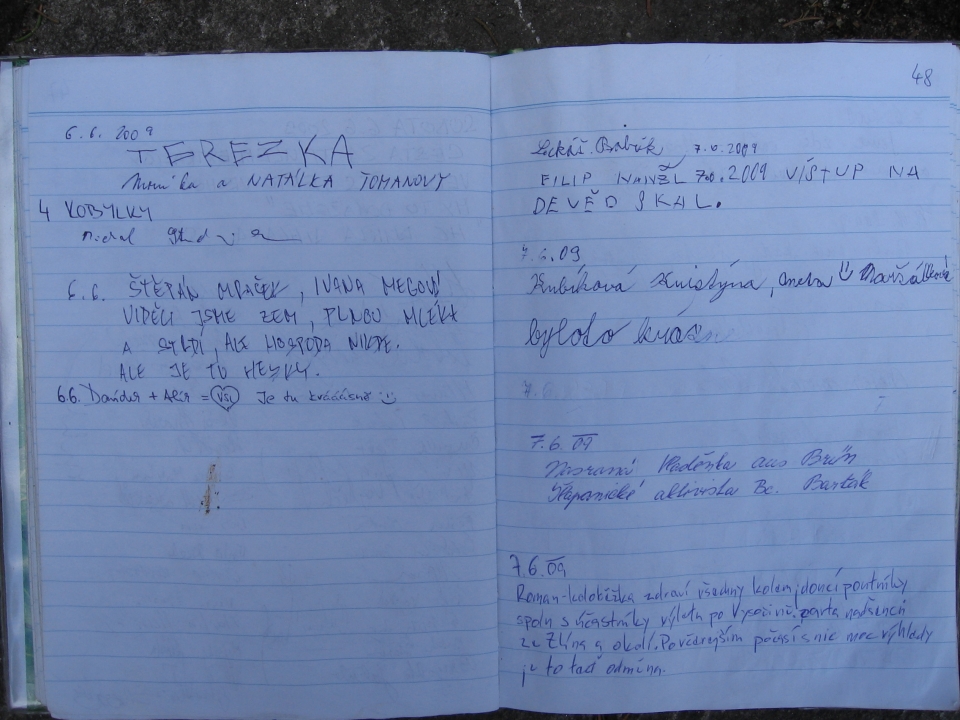 6.6. 2009
TEREZKA
a NATÁLKA TOMANOVY
4 KOBYLKY
Michal
6.6. ŠTĚPÁN MRAČEK, IVANA MEGOVÁ
VIDĚLI JSME ZEM, PLNOU MLÉKA
A STRDÍ, ALE HOSPODA NIKDE.
ALE JE TU HEZKY.
6.6. + = Je tu krááásně
48
Lukáš Babák 7.6.2009
FILIP 7.6.2009 VÍSTUP NA
DEVĚD SKAL.
7.6.09
Kubíková Kristýna, aneb
bylo to krásne
7.6.09
aus Brün
aktivista Bc. Barták
7.6.09
Roman-koloběžka zdraví všechny kolem jdoucí poutníky
spolu s účastníky výletu po Vysočině. parta nadšenců
ze Zlína a okolí. Po včerejším počasí s nic moc výhledy
je to teď odměna.